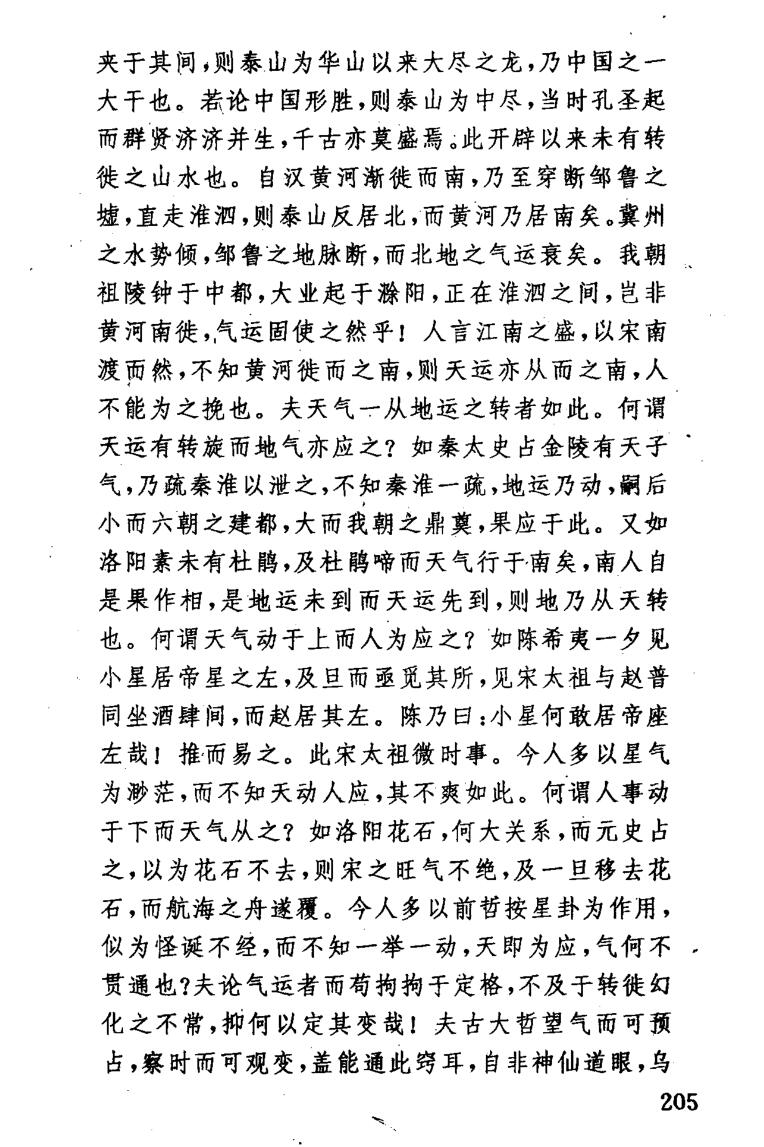 夹于其间,则泰山为华山以来大尽之龙,乃中国之一
大干也。若论中国形胜,则泰山为中尽,当时孔圣起
而群贤济济并生,千古亦莫盛焉。此开辟以来未有转
徙之山水也。自汉黄河渐徙而南,乃至穿断邹鲁之
墟,直走淮泗,则泰山反居北,而黄河乃居南矣。冀州
之水势倾,邹鲁之地脉断,而北地之气运衰矣。我朝
祖陵钟于中都,大业起于滁阳,正在淮泗之间,岂非
黄河南徙,气运固使之然乎!人言江南之盛,以宋南
渡而然,不知黄河徙而之南,则天运亦从而之南,人
不能为之挽也。夫天气一从地运之转者如此。何谓
天运有转旋而地气亦应之?如秦太史占金陵有天子
气,乃疏秦淮以泄之,不知秦淮一疏,地运乃动,嗣后
小而六朝之建都,大而我朝之鼎奠,果应于此。又如
洛阳素未有杜鹃,及杜鹃啼而天气行于南矣,南人自
是果作相,是地运未到而天运先到,则地乃从天转
也。何谓天气动于上而人为应之?如陈希夷一夕见
小星居帝星之左,及旦而亟觅其所,见宋太祖与赵普
同坐酒肆间,而赵居其左。陈乃曰:小星何敢居帝座
左哉!推而易之。此宋太祖微时事。今人多以星气
为渺茫,而不知天动人应,其不爽如此。何谓人事动
于下而天气从之?如洛阳花石,何大关系,而元史占
之,以为花石不去,则宋之旺气不绝,及一旦移去花
石,而航海之舟遂覆。今人多以前哲按星卦为作用,
似为怪诞不经,而不知一举一动,天即为应,气何不
贯通也?夫论气运者而苟拘拘于定格,不及于转徙幻
化之不常,抑何以定其变哉!夫古大哲望气而可预
占,察时而可观变,盖能通此窍耳,自非神仙道眼,乌
205